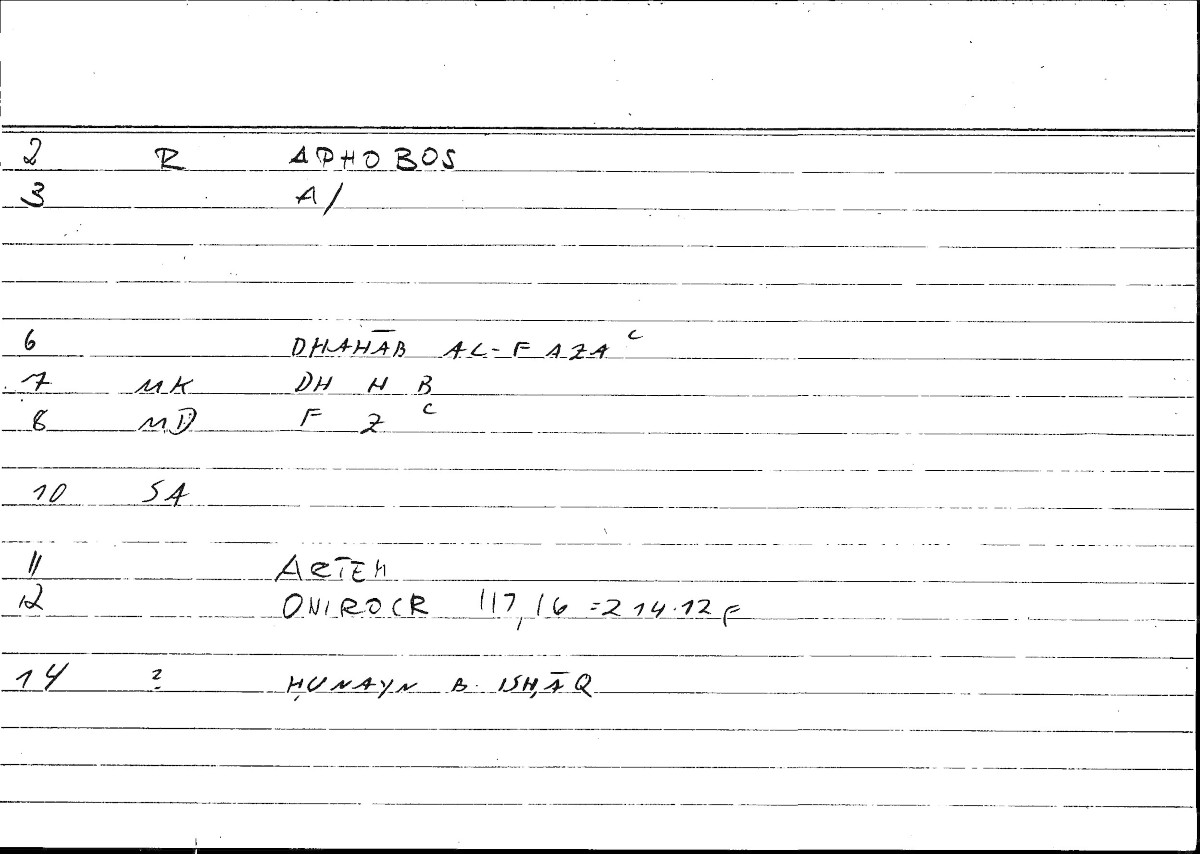 2 R APHOBOS
3 A/
6 DHAHĀB AL-FAZAᶜ
7 MK DH H B
8 MD F Z ᶜ
10 SA
11 ARTEM
12 ONIROCR 117,16 =214.12 F
14 ? ḤUNAYN B. ISḤĀQ